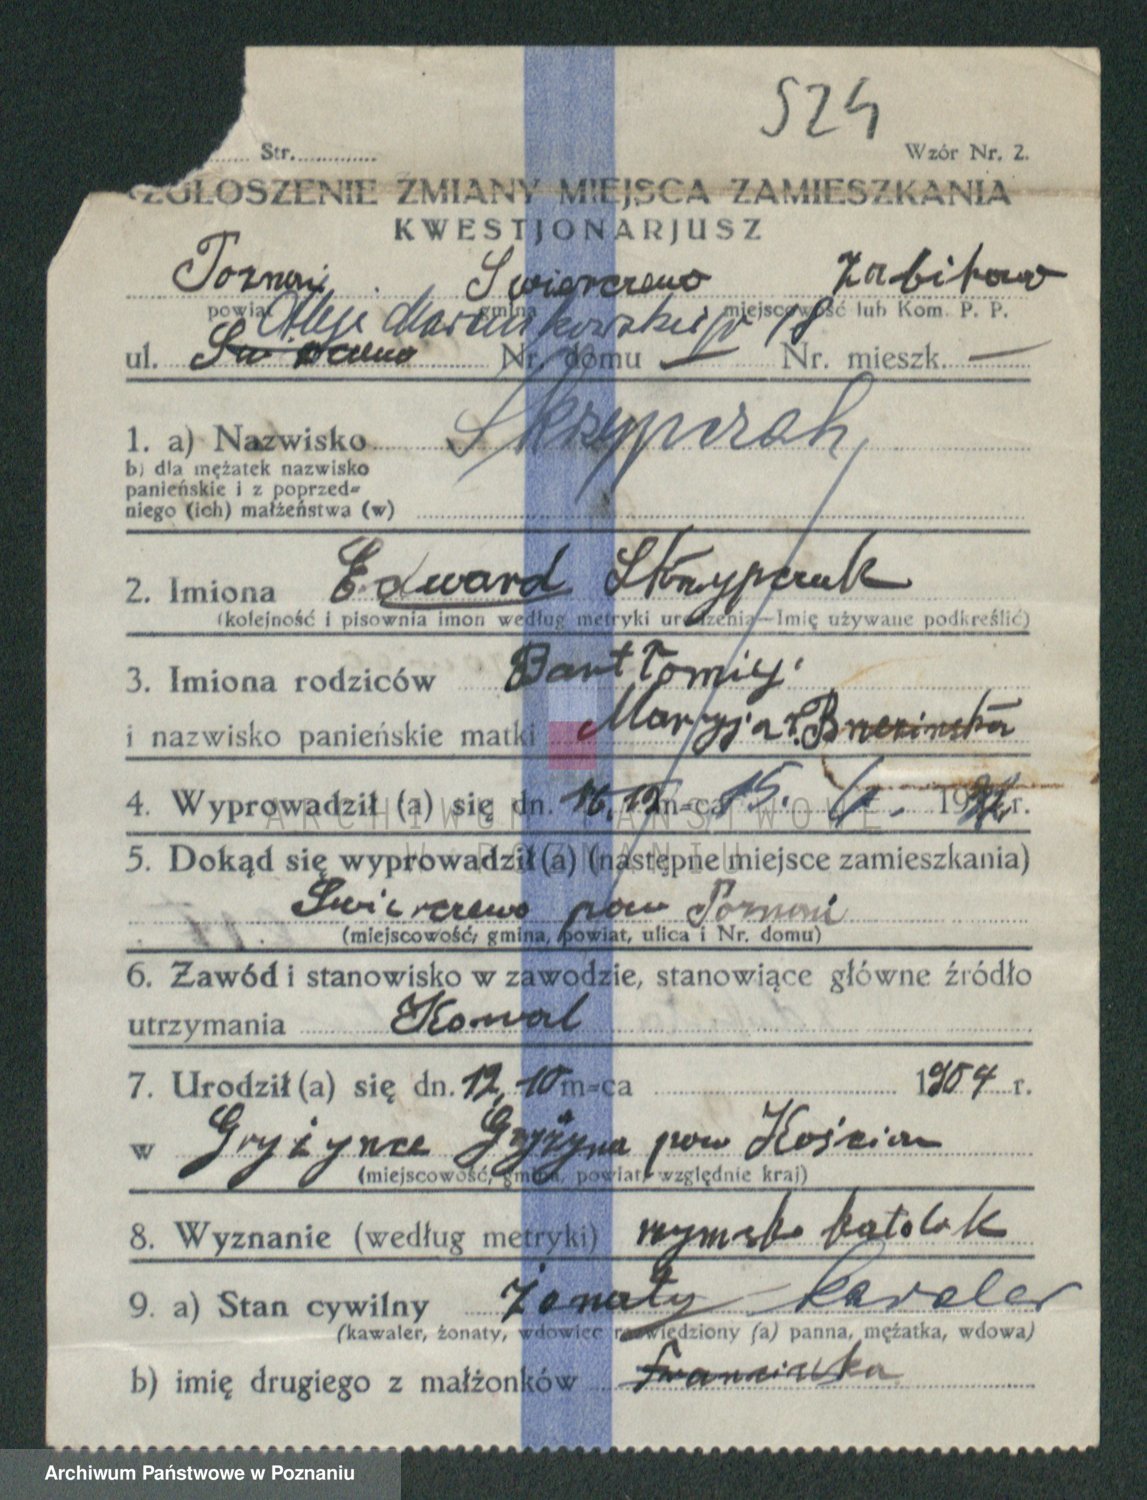 524
Str. Wzór Nr. 2.
ZGŁOSZENIE ZMIANY MIEJSCA ZAMIESZKANIA
KWESTJONARJUSZ
Poznań Swierczewo Zabikowo
powiat gmina miejscowość lub Kom. P. P.
Aleje Marcinkowskiego 18
ul. Swierczewo Nr. domu — Nr. mieszk. —
1. a) Nazwisko Skrzypczak
b) dla mężatek nazwisko
panieńskie i z poprzed-
niego (ich) małżeństwa (w)
2. Imiona Edward Skrzypczak
(kolejność i pisownia imon według metryki urodzenia—Imię używane podkreślić)
3. Imiona rodziców Bartłomiej
i nazwisko panieńskie matki Maryja z. Brzezińska
4. Wyprowadził (a) się dn. 16, 12 m-ca 15. 19 r.
5. Dokąd się wyprowadził (a) (następne miejsce zamieszkania)
Swierczewo pow Poznań
(miejscowość, gmina, powiat, ulica i Nr. domu)
6. Zawód i stanowisko w zawodzie, stanowiące główne źródło
utrzymania Kowal
7. Urodził (a) się dn. 12, 10 m-ca 1904 r.
w Gryżynce Gryżyna pow Kościan
(miejscowość, gmina, powiat, względnie kraj)
8. Wyznanie (według metryki) rzymsko katolik
9. a) Stan cywilny Żonaty kawaler
(kawaler, żonaty, wdowiec rozwiedziony (a) panna, mężatka, wdowa)
b) imię drugiego z małżonków Franciszka
ARCHIWUM PAŃSTWOWE
W POZNANIU
Archiwum Państwowe w Poznaniu